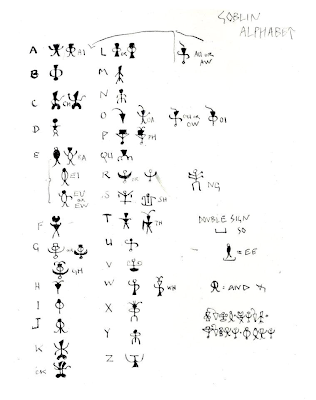 GOBLIN
ALPHABET
A AI
B
C CH
D
E EA
EI
EU OR EW
F
G
GH
H
I
J
K
L
M
N
O OA OU OR OW OI
P PH
QU
R
S SH
T TH
U
V
W WH
X
Y
Z
AU OR
AW
NG
DOUBLE SIGN
SO
= EE
= AND